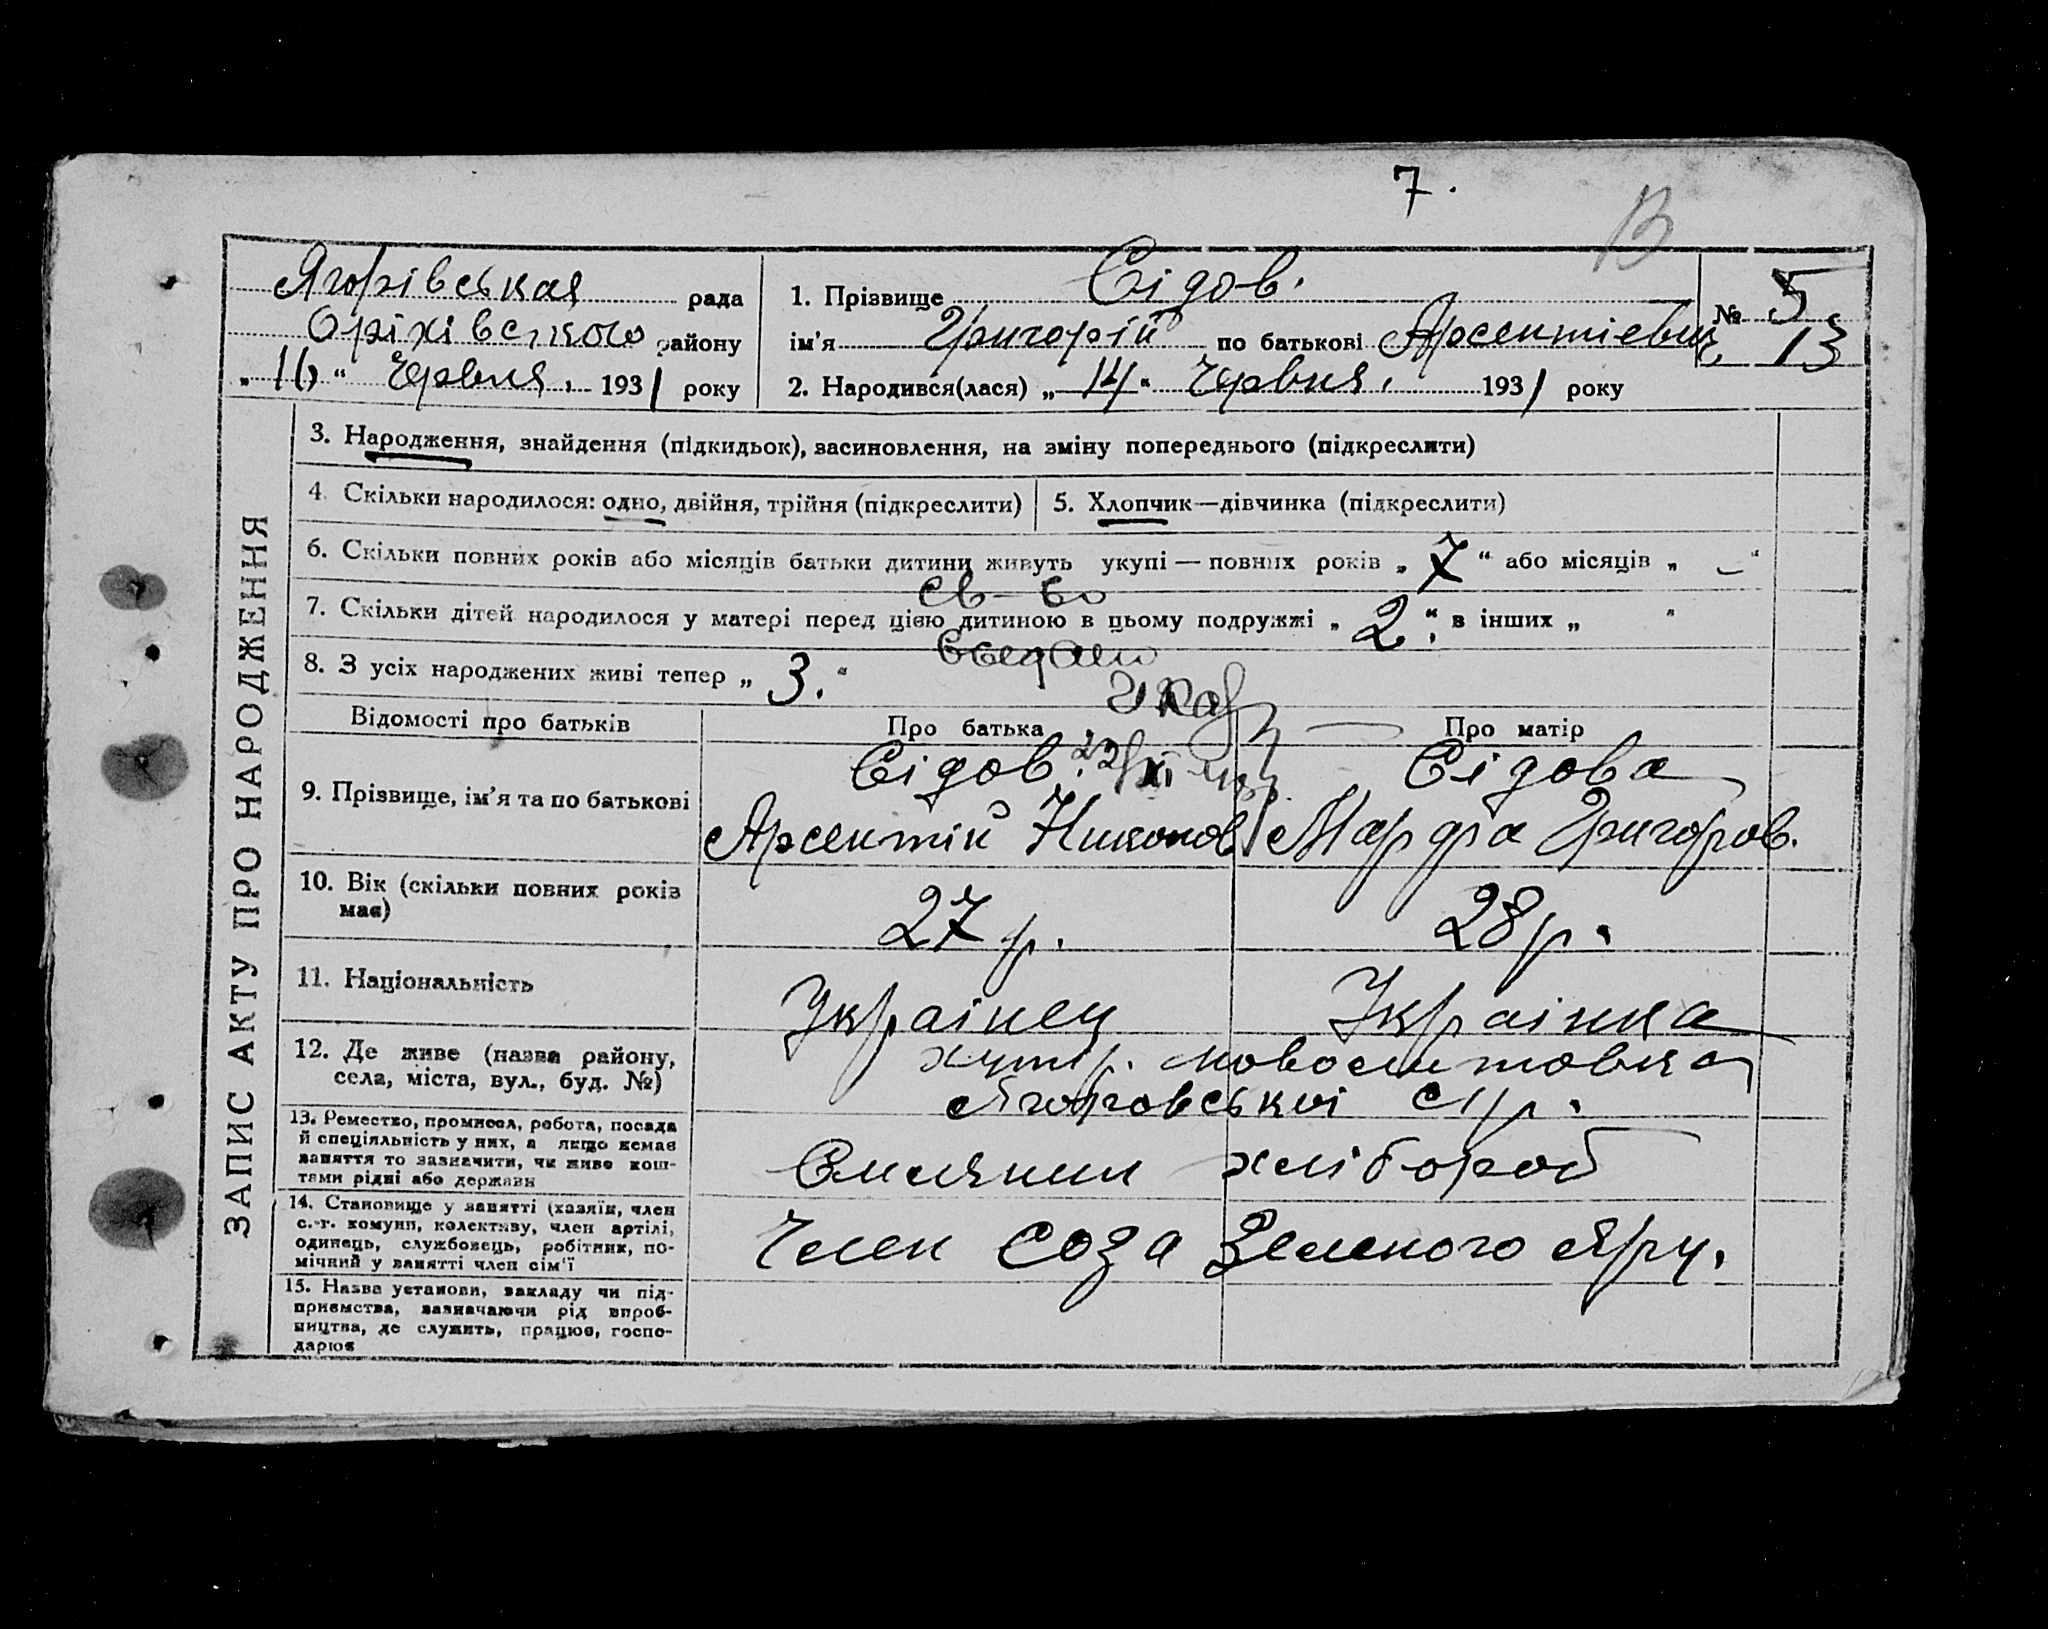 7.
В
Ягорівськая рада
Оріхівського району
„ 16 “ Червня. 1931 року
1. Прізвище Сідов.
ім'я Григорій по батькові Арсентієвич
2. Народився(лася) „ 14 “ Червня. 1931 року
№ 5
13
ЗАПИС АКТУ ПРО НАРОДЖЕННЯ
3. Народження, знайдення (підкидьок), засиновлення, на зміну попереднього (підкреслити)
4. Скільки народилося: одно, двійня, трійня (підкреслити)
5. Хлопчик—дівчинка (підкреслити)
6. Скільки повних років або місяців батьки дитини живуть укупі — повних років „ 7 “ або місяців „ – “
св-во
7. Скільки дітей народилося у матері перед цією дитиною в цьому подружжі „ 2 “. в інших „ “
8. З усіх народжених живі тепер „ 3. “
Відомості про батьків
Про батька
Про матір
9. Прізвище, ім'я та по батькові
Сідов.
Арсентій Никонов
Сідова
Марфа Григоров.
10. Вік (скільки повних років має)
27 р.
28 р.
11. Національність
Українец
Українка
12. Де живе (назва району,
села, міста, вул., буд. №)
хутір.
Ягоровської с/р.
13. Ремество, промисел, робота, посада
й спеціяльність у них, а якщо немає
заняття то зазначити, чи живе кош-
тами рідні або держави
Силянин хлібороб
14. Становище у занятті (хазяїн, член
с.-г. комуни, колективу, член артілі,
одинець, службовець, робітник, по-
мічний у занятті член сім'ї
Член Соза Зеленого Яру.
15. Назва установи, закладу чи під-
приємства, зазначаючи рід вироб-
ництва, де служить, працює, госпо-
дарює